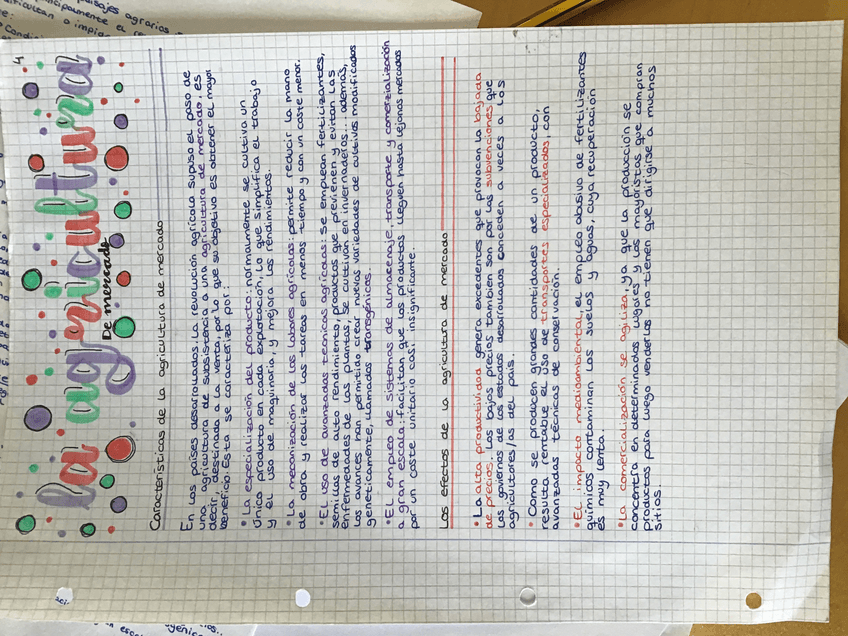 4
la agricultura
De mercado
Características de la agricultura de mercado
En los países desarrollados. La revolución agrícola supuso el paso de
una, agricultura de subsistencia a una agricultura de mercado, es
decir, destinada a la venta, por lo que su objetivo es obtener el mayor
beneficio Esta se caracteriza por:
• La especialización del producto: normalmente se cultiva un
único producto en cada explotación, lo que simplifica el trabajo
y el uso de maquinaria, y mejora los rendimientos.
• La mecanización de las labores agrícolas: permite reducir la mano
de obra y realizar las tareas en menos tiempo y con un coste menor.
• El uso de avanzadas técnicas agrícolas: Se emplean fertilizantes,
semillas de alto rendimiento, productos que previenen y evitan las
enfermedades de las plantas, se cultivan en invernaderos... además,
los avances han permitido crear nuevas variedades de cultivos modificados
genéticamente, llamados transgénicos.
• El empleo de sistemas de almacenaje, transporte y comercialización
a gran escala: facilitan que los productos lleguen hasta lejanos mercados
por un coste unitario casi insignificante.
Los efectos de la agricultura de mercado
• La alta productividad genera excedentes que provocan la bajada
de precios. Los bajos precios también son por las subvenciones que
los gobiernos de los estados desarrollados conceden a veces a los
agricultores/as del país.
• Como se producen grandes cantidades de un producto,
resulta rentable el uso de transportes especializados, con
avanzadas técnicas de conservación.
• El impacto medioambiental, el empleo abusivo de fertilizantes
químicos contaminan los suelos y aguas, cuya recuperación
es muy lenta.
• La comercialización se agiliza, ya que la producción se
concentra en determinados lugares y los mayoristas que compran
productos para luego venderlos no tienen que dirigirse a muchos
sitios.